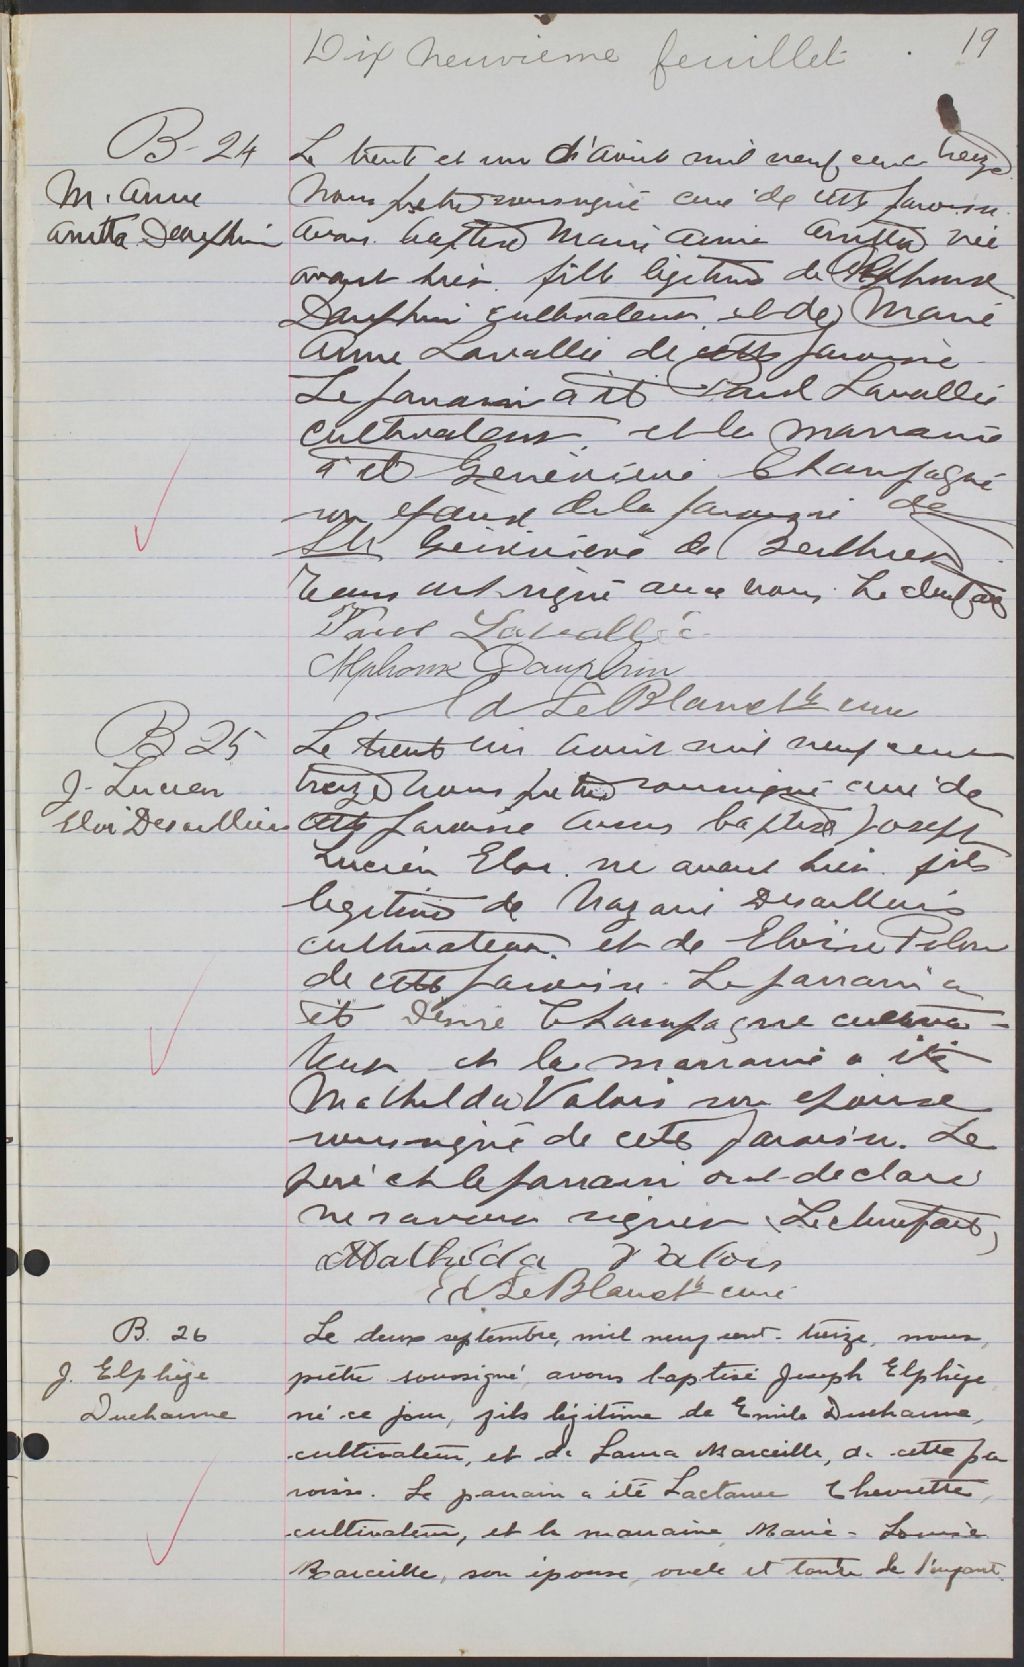 Dix neuvieme feuillet 19
B-24
M. Anne
Anitta Dauphin
Le trente et un d'Aout mil neuf cent treize
Nous pretre soussigné curé de cette paroisse
Avons baptisé Marie Anna Anitta née
avant hier fille légitime de Alphonse
Dauphin cultivateur et de Marie
Anne Lavallée de cette paroisse
Le parrain a été Paul Lavallée
cultivateur et la marraine
a été Geneviève Champagne
son epouse de la paroisse de
Ste Geneviève de Berthier
signé avec nous. Lecture faite
Paul Lavallée
Alphonse Dauphin
Ed LeBlanc Ptre curé
B 25
J. Lucien
Eloi Desalliers
Le trente un Aout mil neuf cent
treize nous pretre soussigné curé de
cette paroisse avons baptisé Joseph
Lucien Eloi né avant hier fils
legitime de Nazaire Desalliers
cultivateur et de Eloise Pilon
de cette paroisse. Le parrain a
été Désiré Champagne cultiva-
teur et la marraine a été
Mathilda Valois son epouse
soussigné de cette paroisse. Le
père et le parrain ont declaré
ne savoir signer. Lecture faite
Mathilda Valois
Ed LeBlanc Ptre curé
B. 26
J. Elphège
Ducharme
Le deux septembre, mil neuf cent-treize, nous,
prêtre soussigné, avons baptisé Joseph Elphège
né ce jour, fils légitime de Emile Ducharme,
cultivateur, et de Laura Marceille, de cette pa
roisse. Le parrain a été Lactance Chevrette,
cultivateur, et la marraine Marie-Louise
Marceille, son épouse, oncle et tante de l'enfant.